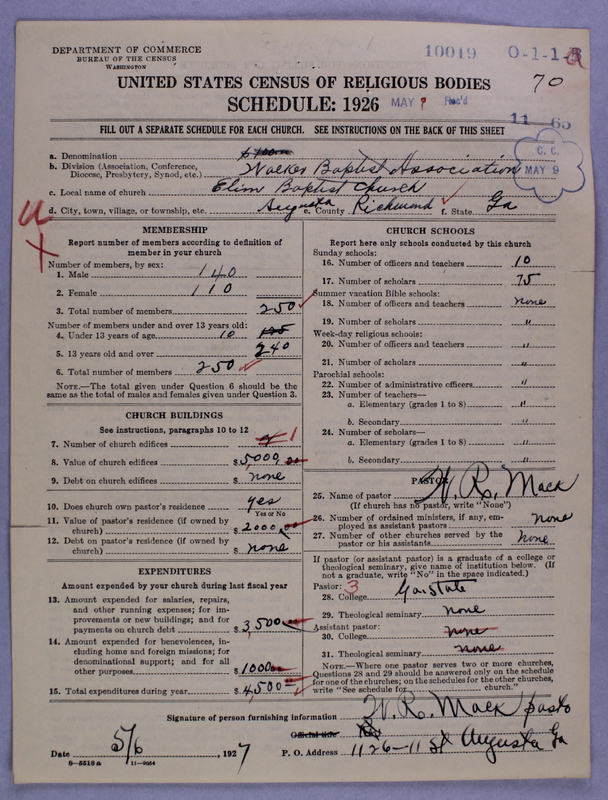 DEPARTMENT OF COMMERCE
BUREAU OF THE CENSUS
WASHINGTON
10019 0-1-1
70
UNITED STATES CENSUS OF RELIGIOUS BODIES
SCHEDULE: 1926 MAY 9 Rec'd
11 65
FILL OUT A SEPARATE SCHEDULE FOR EACH CHURCH. SEE INSTRUCTIONS ON THE BACK OF THIS SHEET
C. C.
MAY 9
a. Denomination
b. Division (Association, Conference, Diocese, Presbytery, Synod, etc.) Walker Baptist Association
c. Local name of church Elim Baptist Church
d. City, town, village, or township, etc. Augusta e. County Richmond f. State Ga
MEMBERSHIP
Report number of members according to definition of
member in your church
Number of members by sex:
1. Male 140
2. Female 110
3. Total number of members 250
Number of members under and over 13 years old:
4. Under 13 years of age 10
5. 13 years old and over 240
6. Total number of members 250
NOTE.—The total given under Question 6 should be
same as the total of males and females given under Question 3.
CHURCH BUILDINGS
See instructions, paragraphs 10 to 12
7. Number of church edifices 1
8. Value of church edifices $5000.00
9. Debt on church edifices $ none
10. Does church own pastor's residence yes
Yes or No
11. Value of pastor's residence (if owned by
church) $2000
12. Debt on pastor's residence (if owned by
church) $ none
EXPENDITURES
Amount expended by your church during last fiscal year
13. Amount expended for salaries, repairs,
and other running expenses; for im-
provements or new buildings; and for
payments on church debt $3,500
14. Amount expended for benevolences, in-
cluding home and foreign missions; for
denominational support; and for all
other purposes $1000
15. Total expenditures during year $4,500
CHURCH SCHOOLS
Report here only schools conducted by this church
Sunday schools:
16. Number of officers and teachers 10
17. Number of scholars 75
Summer vacation Bible schools:
18. Number of officers and teachers none
19. Number of scholars "
Week-day religious schools:
20. Number of officers and teachers "
21. Number of scholars "
Parochial schools:
22. Number of administrative officers "
23. Number of teachers—
a. Elementary (grades 1 to 8) "
b. Secondary "
24. Number of scholars—
a. Elementary (grades 1 to 8) "
b. Secondary "
PASTOR
25. Name of pastor W. R. Mack
(If church has no pastor, write "None")
26. Number of ordained ministers, if any, em-
ployed as assistant pastors none
27. Number of other churches served by the
pastor or his assistants none
If pastor (or assistant pastor) is a graduate of a college or
theological seminary, give name of institution below. (If
not a graduate, write "No" in the space indicated.)
Pastor: 3
28. College Ga. State
29. Theological seminary none
Assistant pastor:
30. College none
31. Theological seminary none
NOTE.—Where one pastor serves two or more churches,
Questions 28 and 29 should be answered only on the schedule
for one of the churches; on the schedules for the other churches,
write "See schedule for church."
Signature of person furnishing information W. R. Mack pasto
Official title
Date 5/6, 1927 P. O. Address 1126-11 St Augusta Ga
8-5518 a 11-9064